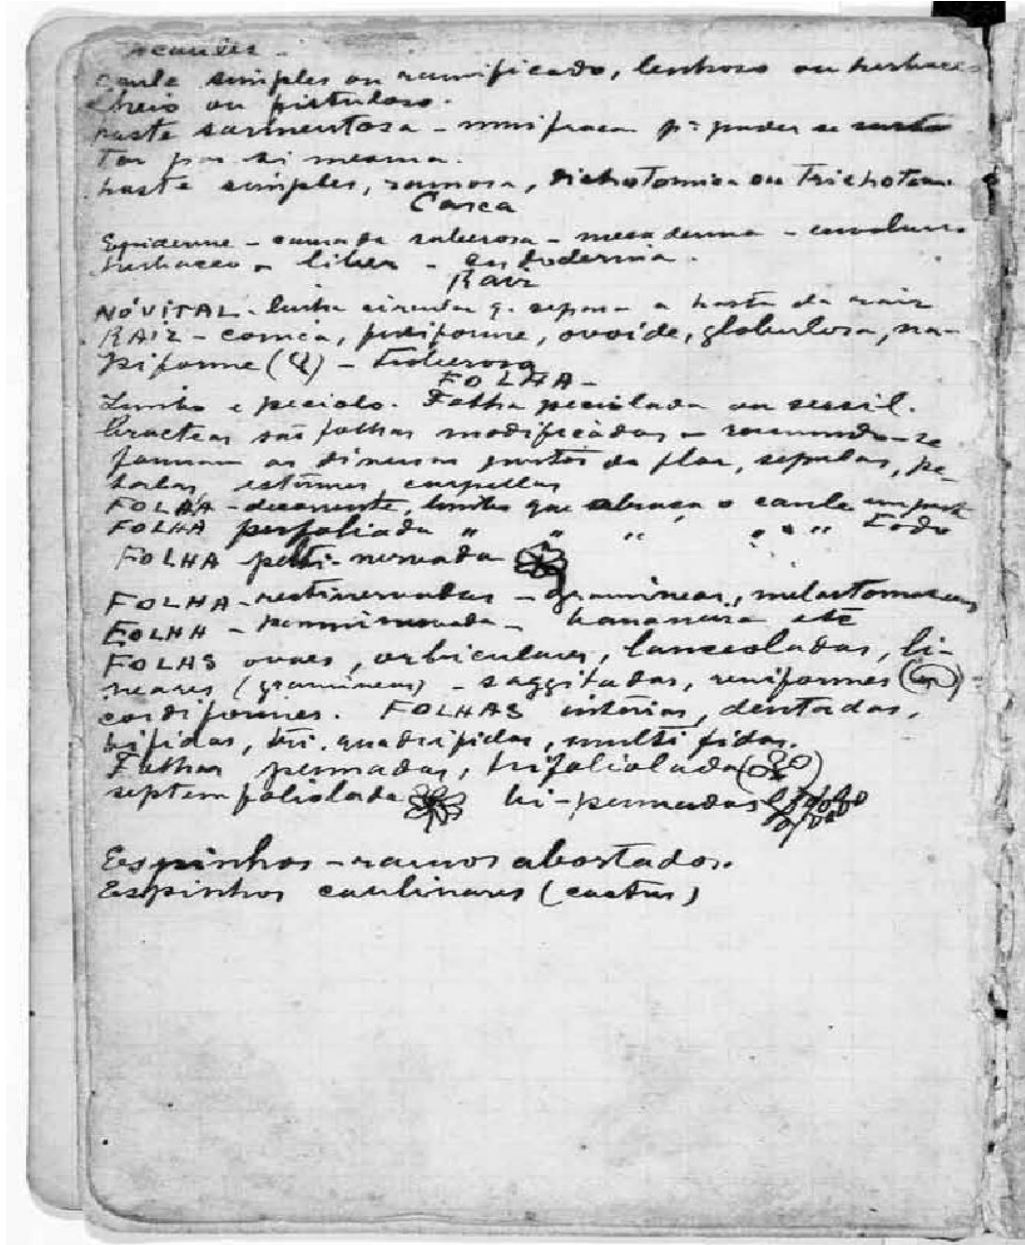 caule simples ou ramificado, lenhoso ou herbaceo
cheio ou fistuloso.
haste sarmentosa - mui fraca pª poder se susten
tar por si mesma.
haste simples, ramosa, dichotomica ou trichotom.
Casca
Epiderme - camada suberosa - mesoderma - envolucro
herbaceo - liber - endoderma.
Raiz
NÓ VITAL - linha circular q. separa a haste da raiz
RAIZ - conica, fusiforme, ovoide, globulosa, na-
piforme ( ) - tuberosa
FOLHA -
Limbo e peciolo. Folha peciolada ou sessil.
Bracteas são folhas modificadas - reunindo-se
formam as diversas partes da flor, sepalas, pe-
talas, estames, carpellas
FOLHA - decurrente, limbo que abraça o caule em parte
FOLHA perfoliada " " " " " " todo
FOLHA pelti-nervada
FOLHA - rectinervadas - gramineas, melastomaceas
FOLHA - penninervada - bananeira etc
FOLAS ovaes, orbiculares, lanceoladas, li-
neares (gramineas) - saggitadas, reniformes ( ) -
cordiformes. FOLHAS inteiras, dentadas,
bifidas, tri. quadrifidas, multi fidas.
Folhas pennadas, trifoliolada ( )
septemfoliolada bi-pennadas
Espinhos - ramos abortados.
Espinhos caulinares (cactus)